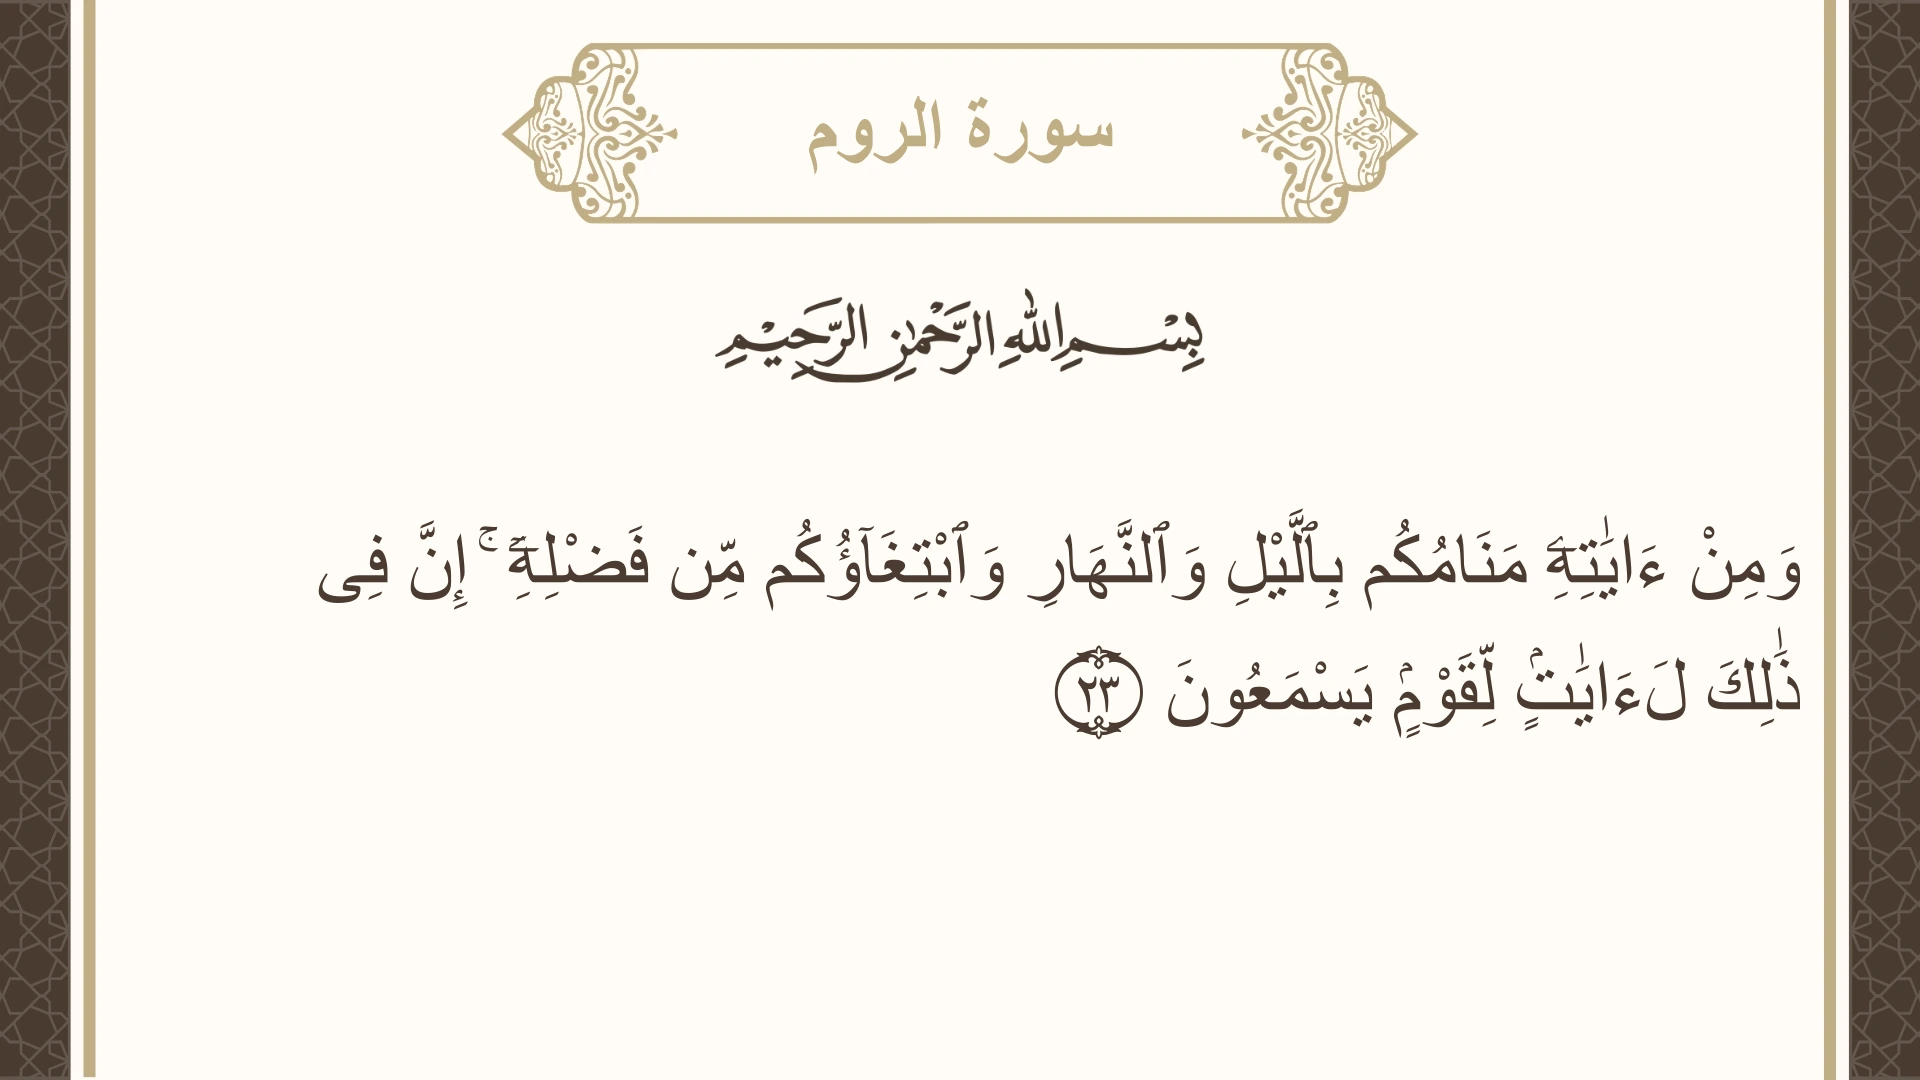 سورة الروم
بِسْمِ اللهِ الرَّحْمٰنِ الرَّحِيْمِ
وَمِنْ ءَايَـٰتِهِۦ مَنَامُكُم بِٱلَّيْلِ وَٱلنَّهَارِ وَٱبْتِغَآؤُكُم مِّن فَضْلِهِۦٓ ۚ إِنَّ فِى
ذَٰلِكَ لَـَٔايَـٰتٍۢ لِّقَوْمٍۢ يَسْمَعُونَ ٢٣